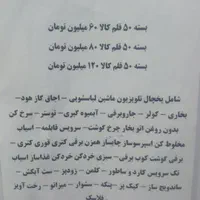 بسته ۵۰ قلم کالا ۶۰ میلیون تومان
بسته ۵۰ قلم کالا ۸۰ میلیون تومان
بسته ۵۰ قلم کالا ۱۲۰ میلیون تومان
شامل یخچال تلویزیون ماشین لباسشویی – اجاق گاز هود –
بخاری – کولر – جاروبرقی – آبمیوه گیری – توستر – سرخ کن
بدون روغن اتو بخار چرخ گوشت – سرویس قابلمه – آسیاب
مخلوط کن اسپرسوساز چایساز همزن برقی کتری قوری کتری
برقی گوشت کوب برقی – سبزی خردکن خردکن غذاساز آسیاب
تک سرویس کارد و ساطور – کلمن – زودپز – ست آبکش –
ساندویچ ساز – کیک پز – پنکه – سشوار – میزاتو – رخت آویز
فلاسک